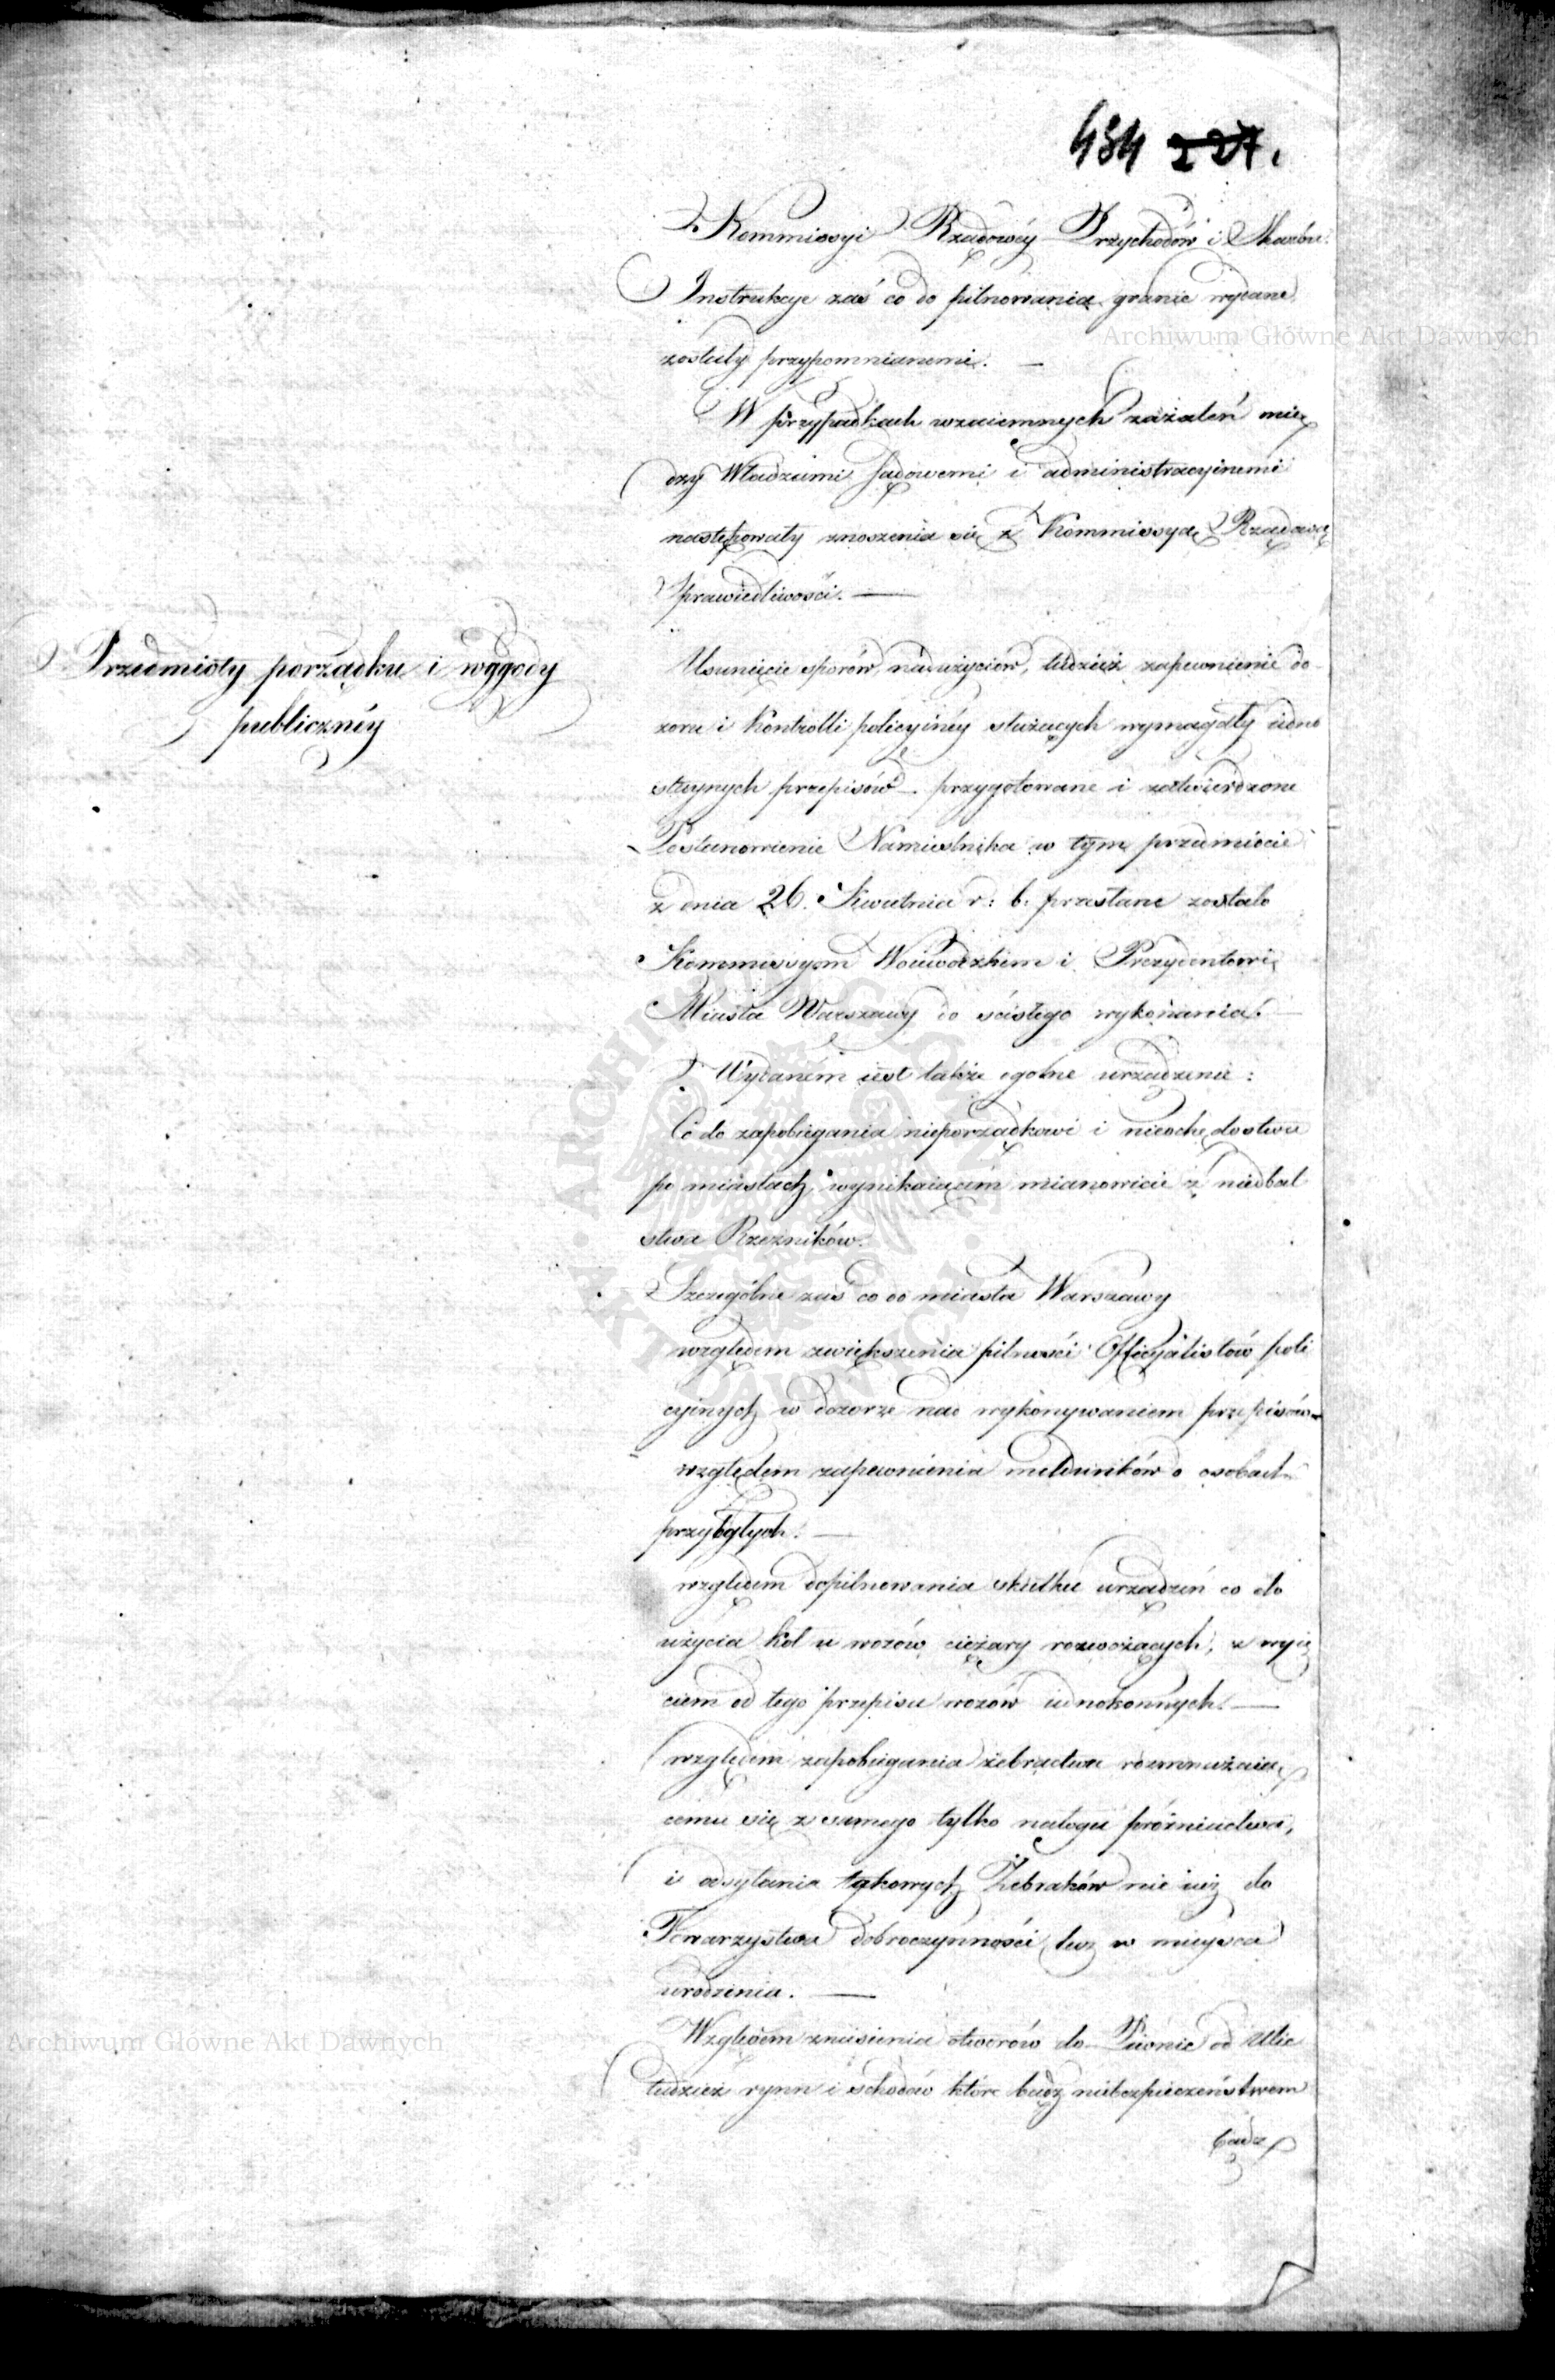 484 227.
Kommissyi Rządowéy Przychodów i Skarbu.
Instrukcye zaś co do pilnowania granic wydane
zostały przypomnianemi. —
W przypadkach wzaiemnych zażaleń mię
dzy Władzami Sądowemi i administracyinemi
następowały znoszenia się z Kommissyą Rządową
Sprawiedliwości. —
Przedmioty porządku i wygody
publicznéy
Usunięcie sporów, nadużyciów, tudzież zapewnienie do
zoru i Kontrolli policyinéy służących wymagały iedno
staynych przepisów — przygotowane i zatwierdzone
Postanowienie Namiestnika w tym przedmiocie
z dnia 26. Kwietnia r: b: przesłane zostało
Kommissyom Woiewódzkim i Prezydentowi
Miasta Warszawy do ścisłego wykonania. —
Wydaném iest także ogólne urządzenie:
Co do zapobiegania nieporządkowi i nieochędostwu
po miastach, wynikaiącém mianowicie z niedbal
stwa Rzezników.
Szczególnie zaś co do miasta Warszawy
względem zwiększenia pilności Officyalistów poli
cyinych w dozorze nad wykonywaniem przepisów —
względem zapewnienia meldunków o osobach
przybyłych. —
względem dopilnowania skutku urządzeń co do
użycia kół u wozów ciężary rozwożących, z wyię
ciem od tego przepisu wozów iednokonnych. —
względem zapobiegania żebractwu rozmnażaią
cemu się z samego tylko nałogu próżniactwa,
i odsyłania takowych Żebraków nie iuż do
Towarzystwa dobroczynności lecz w mieysca
urodzenia. —
Względem zniesienia otworów do Piwnic od Ulic
tudzież rynn i schodów które bądź niebezpieczeństwem
bądź
Archiwum Główne Akt Dawnych
Archiwum Główne Akt Dawnych
ARCHIWUM GŁÓWNE AKT DAWNYCH